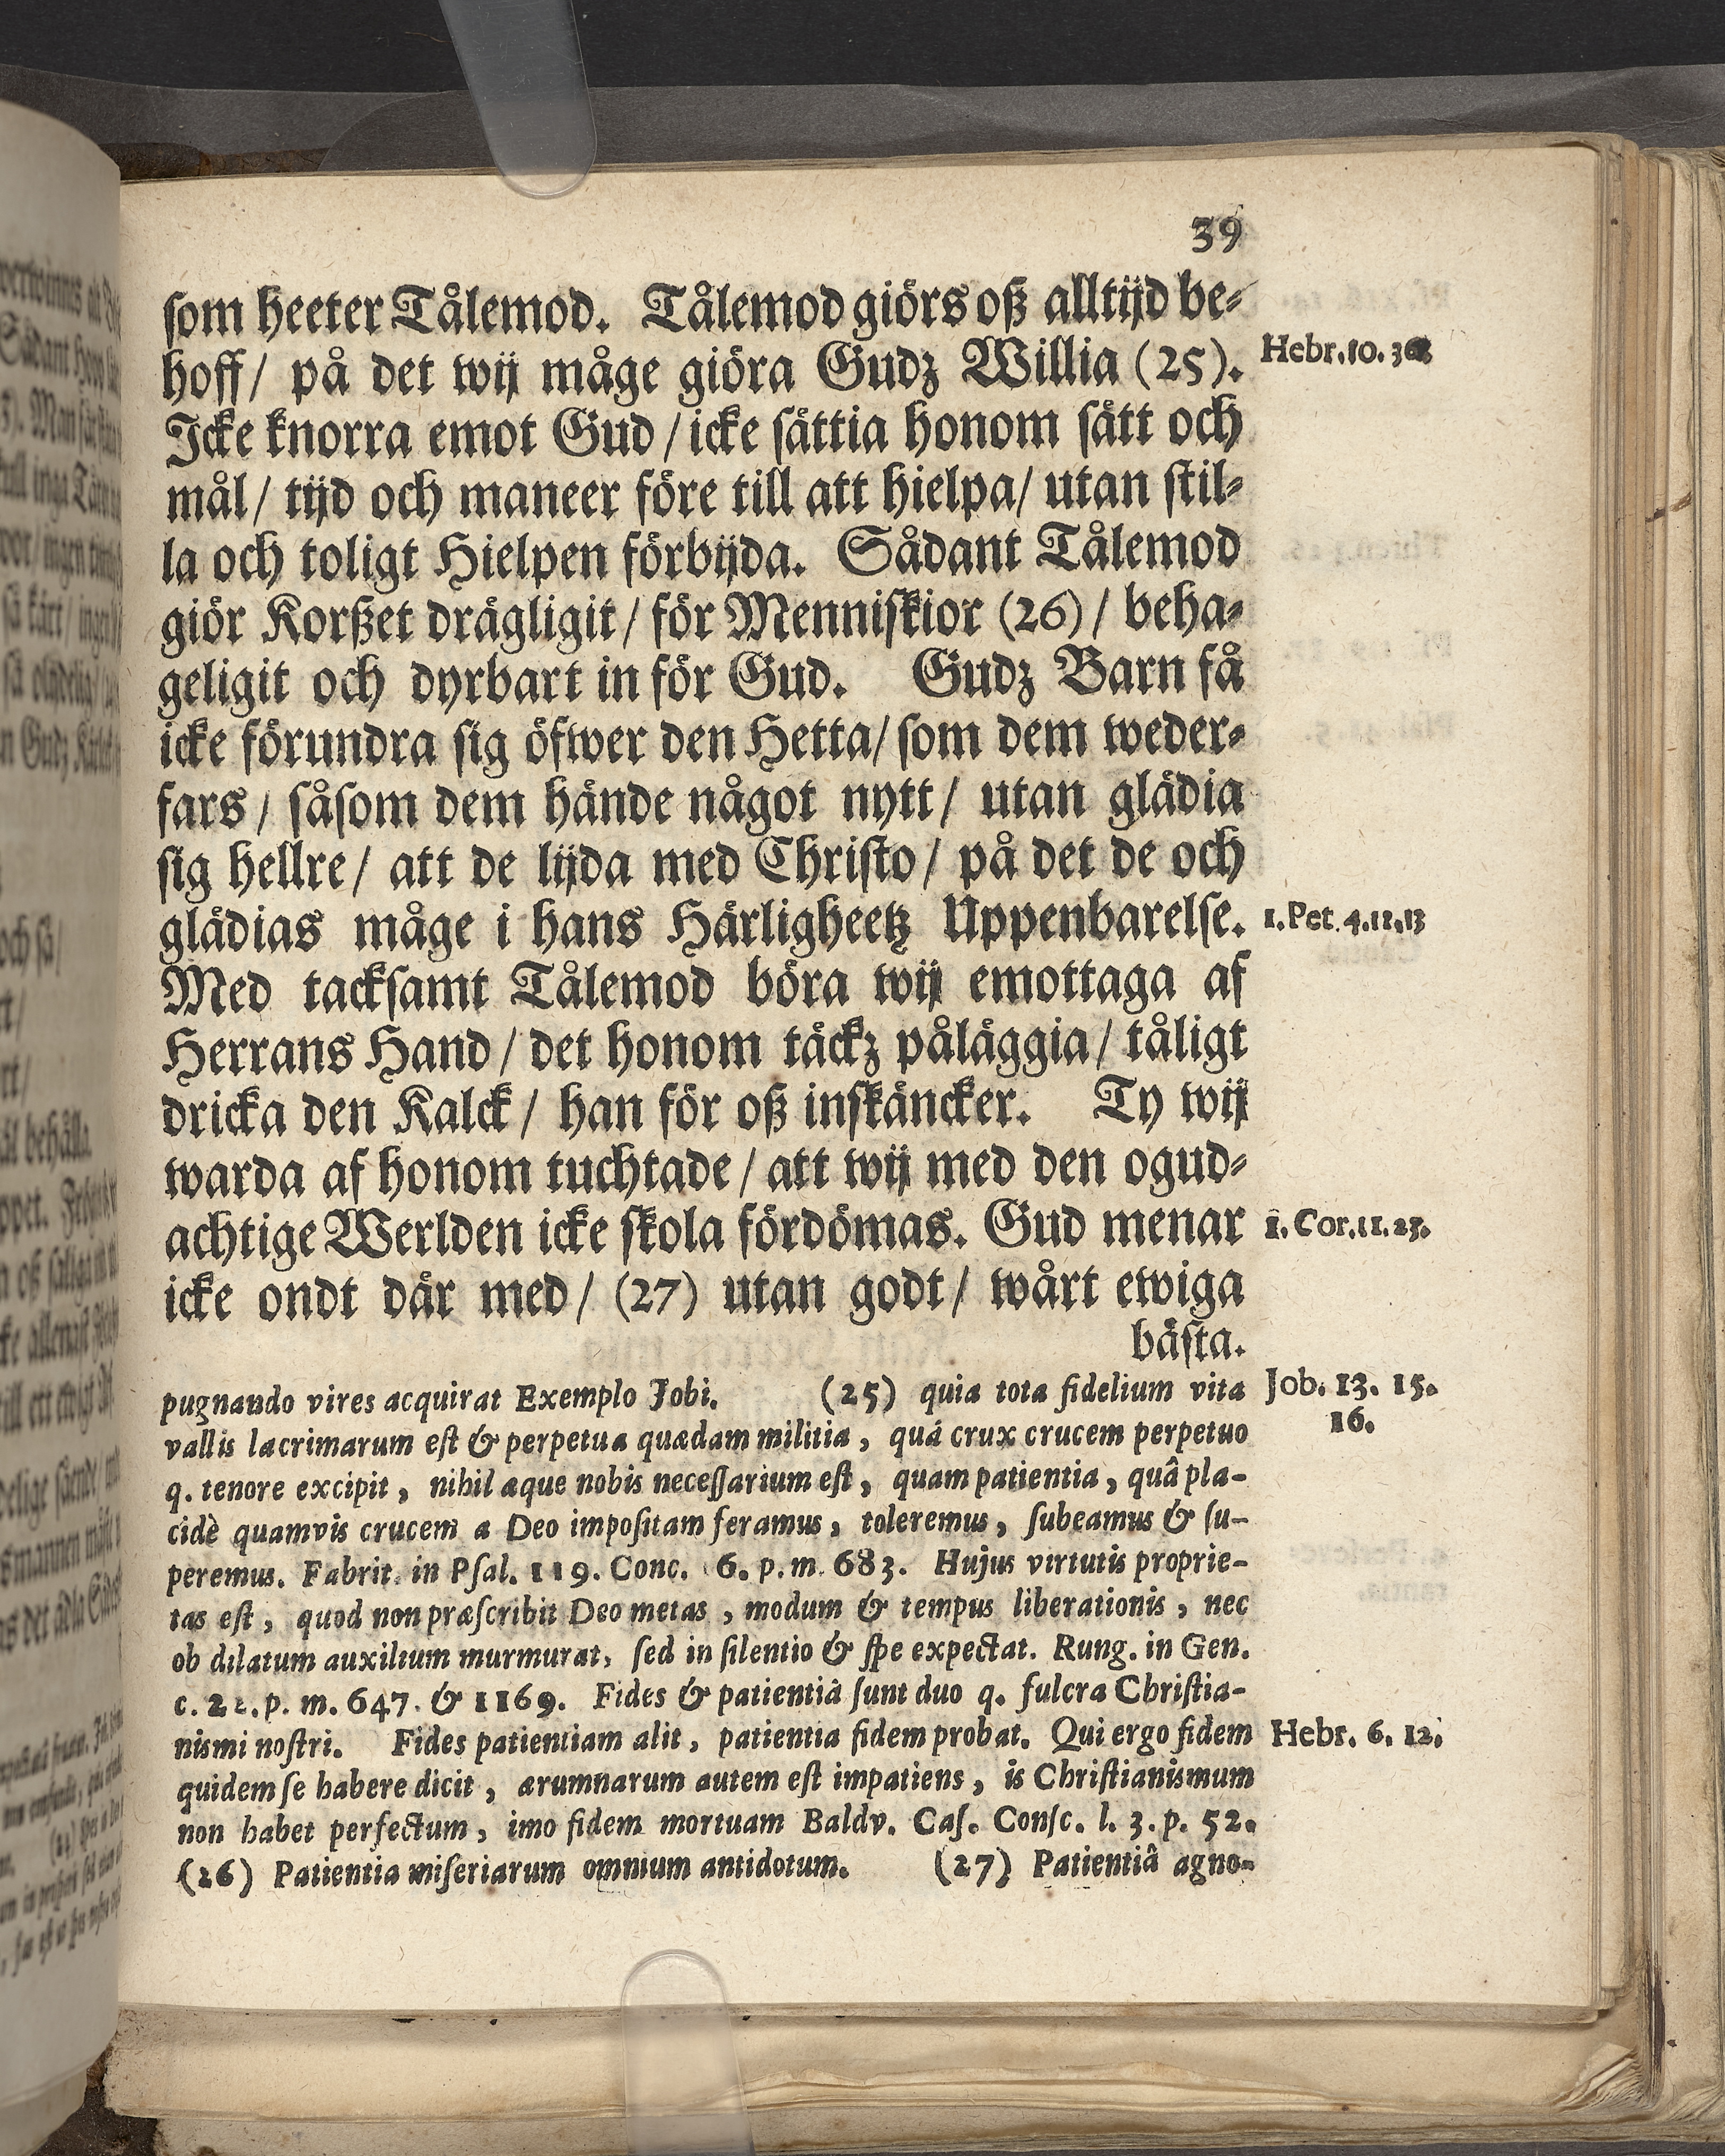 39
som heeter Tålemod. Tålemod giörs oß alltijd be-
hoff / på det wij måge giöra Gudz Willia (25).
Hebr. 10. 36
Icke knorra emot Gud / icke sättia honom sätt och
mål / tijd och maneer före till att hielpa / utan stil-
la och toligt Hielpen förbijda. Sådant Tålemod
giör Korßet drägligit / för Menniskior (26) / beha-
geligit och dyrbart in för Gud. Gudz Barn få
icke förundra sig öfwer den Hetta / som dem weder-
fars / såsom dem hände något nytt / utan glädia
sig hellre / att de lijda med Christo / på det de och
glädias måge i hans Härligheetz Uppenbarelse.
1. Pet. 4. 12, 13
Med tacksamt Tålemod böra wij emottaga af
Herrans Hand / det honom täckz påläggia / tåligt
dricka den Kalck / han för oß inskäncker. Ty wij
warda af honom tuchtade / att wij med den ogud-
achtige Werlden icke skola fördömas. Gud menar
1. Cor. 11.
icke ondt där med / (27) utan godt / wårt ewiga
bästa.
pugnando vires acquirat Exemplo Jobi. (25) quia tota fidelium vita
Job. 13. 15.
16.
vallis lacrimarum est & perpetua quædam militia, quá crux crucem perpetuo
q. tenore excipit, nihil æque nobis necessarium est, quam patientia, quâ pla-
cidè quamvis crucem a Deo impositam feramus, toleremus, subeamus & su-
peremus. Fabrit. in Psal. 119. Conc. 6. p. m. 683. Hujus virtutis proprie-
tas est, quod non præscribit Deo metas, modum & tempus liberationis, nec
ob dilatum auxilium murmurat, sed in silentio & spe expectat. Rung. in Gen.
c. p. m. 647. & 1169. Fides & patientiâ sunt duo q. fulcra Christia-
nismi nostri. Fides patientiam alit, patientia fidem probat. Qui ergo fidem
Hebr. 6. 12.
quidem se habere dicit, ærumnarum autem est impatiens, is Christianismum
non habet perfectum, imo fidem mortuam Baldv. Cas. Consc. l. 3. p. 52.
(26) Patientia miseriarum omnium antidotum. (27) Patientiâ agno-